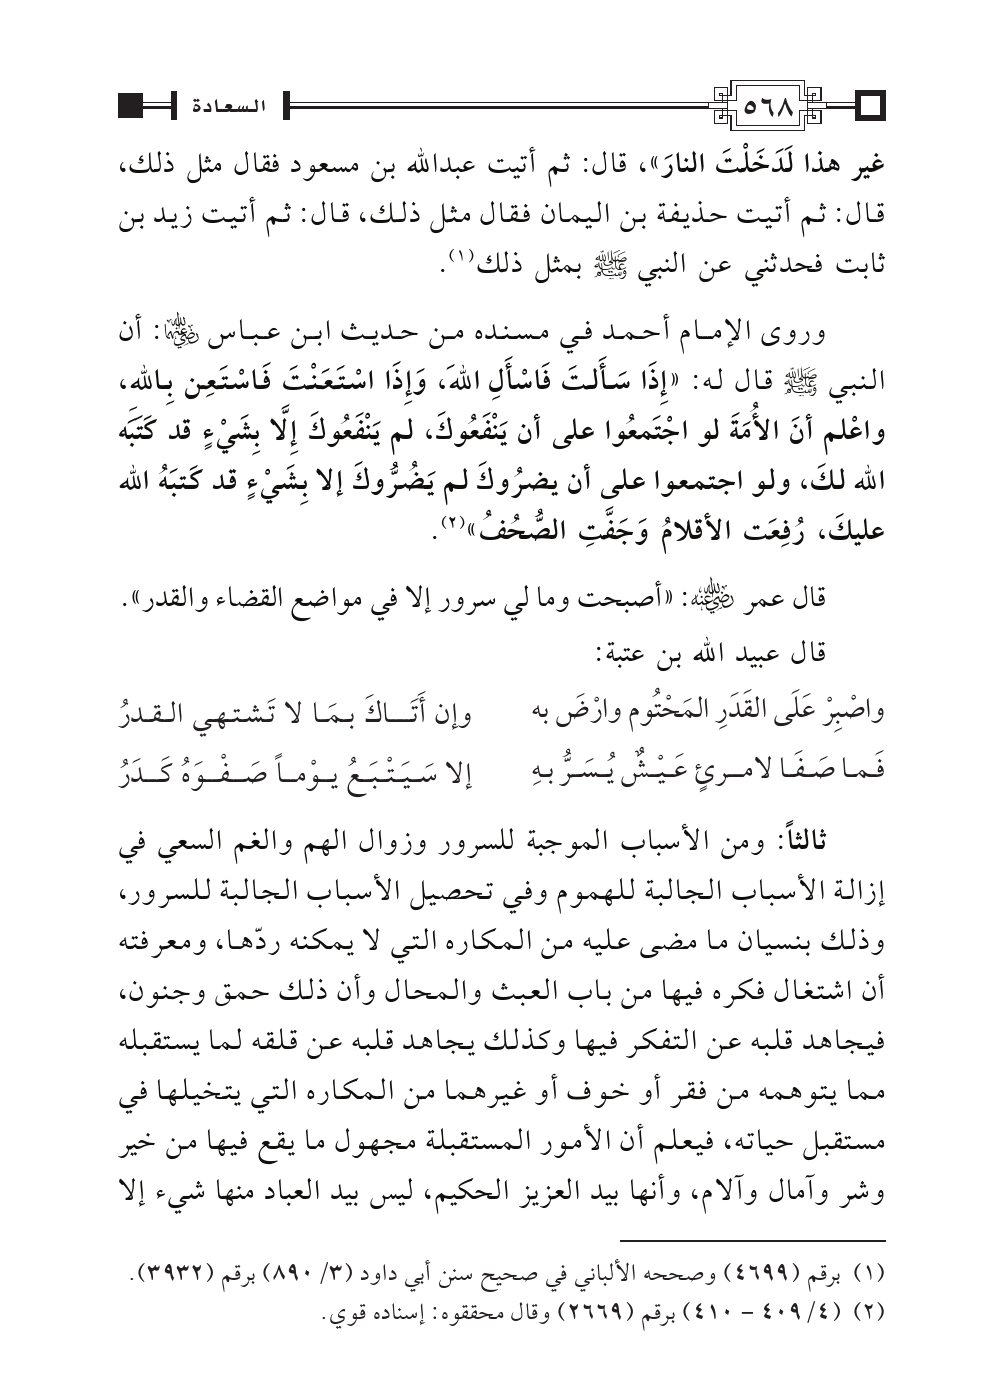 السعادة ٥٦٨
غير هذا لَدَخَلْتَ النارَ»، قال: ثم أتيت عبدالله بن مسعود فقال مثل ذلك،
قال: ثم أتيت حذيفة بن اليمان فقال مثل ذلك، قال: ثم أتيت زيد بن
ثابت فحدثني عن النبي ﷺ بمثل ذلك(١).
وروى الإمام أحمد في مسنده من حديث ابن عباس رضي الله عنهما: أن
النبي ﷺ قال له: «إِذَا سَأَلتَ فَاسْأَلِ اللهَ، وَإِذَا اسْتَعَنْتَ فَاسْتَعِن بِالله،
واعْلم أنَ الأُمَةَ لو اجْتَمعُوا على أن يَنْفَعُوكَ، لم يَنْفَعُوكَ إِلَّا بِشَيْءٍ قد كَتَبَه
الله لكَ، ولو اجتمعوا على أن يضرُوكَ لم يَضُرُّوكَ إلا بِشَيْءٍ قد كَتبَهُ الله
عليكَ، رُفِعَت الأقلامُ وَجَفَّتِ الصُّحُفُ»(٢).
قال عمر رضي الله عنه: «أصبحت وما لي سرور إلا في مواضع القضاء والقدر».
قال عبيد الله بن عتبة:
واصْبِرْ عَلَى القَدَرِ المَحْتُوم وارْضَ به وإن أَتَاكَ بمَا لا تَشتهي القدرُ
فَما صَفَا لامرئٍ عَيْشٌ يُسَرُّ بهِ إلا سَيَتْبَعُ يوْماً صَفْوَهُ كَدَرُ
ثالثاً: ومن الأسباب الموجبة للسرور وزوال الهم والغم السعي في
إزالة الأسباب الجالبة للهموم وفي تحصيل الأسباب الجالبة للسرور،
وذلك بنسيان ما مضى عليه من المكاره التي لا يمكنه ردّها، ومعرفته
أن اشتغال فكره فيها من باب العبث والمحال وأن ذلك حمق وجنون،
فيجاهد قلبه عن التفكر فيها وكذلك يجاهد قلبه عن قلقه لما يستقبله
مما يتوهمه من فقر أو خوف أو غيرهما من المكاره التي يتخيلها في
مستقبل حياته، فيعلم أن الأمور المستقبلة مجهول ما يقع فيها من خير
وشر وآمال وآلام، وأنها بيد العزيز الحكيم، ليس بيد العباد منها شيء إلا
(١) برقم (٤٦٩٩) وصححه الألباني في صحيح سنن أبي داود (٣/ ٨٩٠) برقم (٣٩٣٢).
(٢) (٤/ ٤٠٩ – ٤١٠) برقم (٢٦٦٩) وقال محققوه: إسناده قوي.